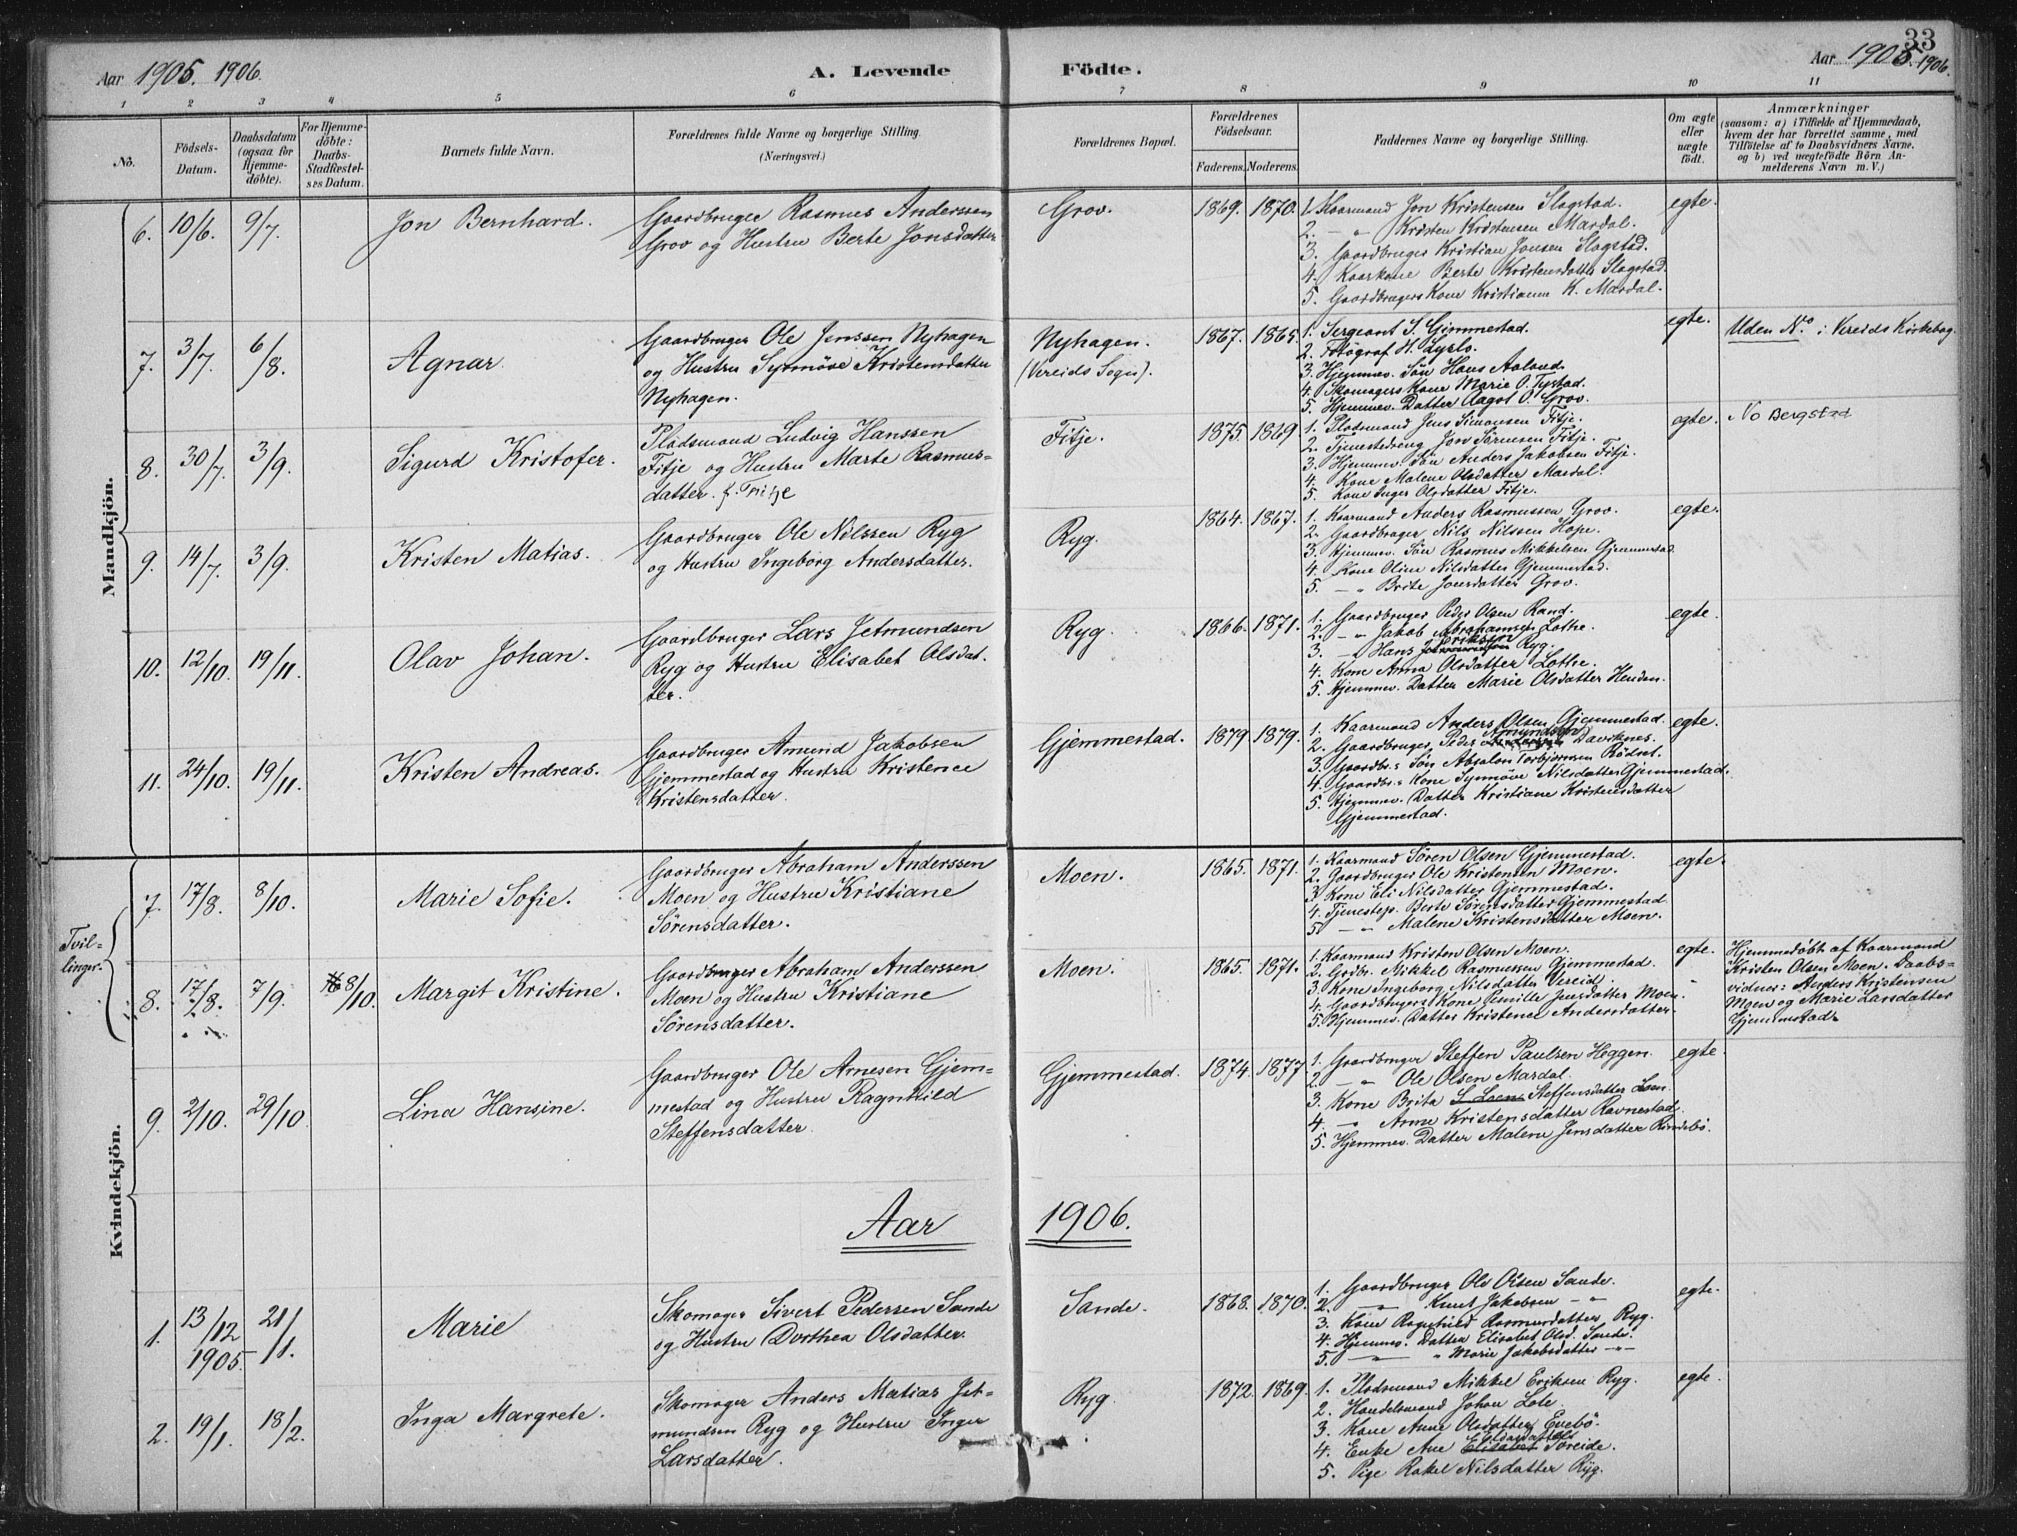 33
Aar 1905. 1906.
A. Levende
Födte.
Aar 1905. 1906.
1 2 3 4 5 6 7 8 9 10 11
No.
Födsels-Datum.
Daabsdatum (ogsaa for Hjemme-döbte).
For Hjemme-döbte: Daabs-Stadfæstel-ses Datum.
Barnets fulde Navn.
Forældrenes fulde Navne og borgerlige Stilling.
(Næringsvei.)
Forældrenes Bopæl.
Forældrenes Födselsaar.
Faderens. Moderens.
Faddernes Navne og borgerlige Stilling.
Om ægte eller uægte födt.
Anmærkninger
(saasom: a) i Tilfælde af Hjemmedaab,
hvem der har forrettet samme, med
Tilföielse af to Daabsvidners Navne.
og b) ved uægtefödte Börn An-
melderens Navn m. V.)
Mandkjön.
6. 10/6. 9/7. Jon Bernhard.
Gaardbruger Rasmus Anderssen
Grov og Hustru Berte Jonsdatter
Grov. 1869. 1870.
1. Kaarmand Jon Kristensen Slagstad.
2. — " Kristen Kristensen Mardal.
3. Gaardbruger Kristian Jonsen Slagstad.
4. Kaarkone Berte Kristensdatter Slagstad.
5. Gaardbrugers Kone Kristianna K. Mardal.
egte.
7. 3/7. 6/8. Agnar.
Gaardbruger Ole Jenssen Nyhagen
og Hustru Synnöve Kristensdatter
Nyhagen.
Nyhagen.
(Vereids Sogn).
1867. 1865.
1. Sergeant S. Gimmestad.
2. Fotograf H. Lyslo.
3. Hjemmev. Sön Hans Aaland.
4. Skomagers Kone Marie O. Tystad.
5. Hjemmev. Datter Aagot O. Grov.
egte.
Uden No i Vereids Kirkebog
8. 30/7. 3/9. Sigurd Kristofer.
Pladsmand Ludvig Hanssen
Fitje og Hustru Marte Rasmus-
datter. f. Fitje
Fitje. 1875. 1869.
1. Pladsmand Jens Simonsen Fitje.
2. Tjenestedreng Jon Sörensen Fitje.
3. Hjemmev. Sön Anders Jakobsen Fitje.
4. Kone Malene Olsdatter Mardal.
5. Kone Inger Olsdatter Fitje.
egte.
No Bergstad
9. 14/7. 3/9. Kristen Matias.
Gaardbruger Ole Nilssen Ryg
og Hustru Ingeborg Andersdatter.
Ryg. 1864. 1867.
1. Kaarmand Anders Rasmussen Grov.
2. Gaardbruger Nils Nilssen Hope.
3. Hjemmev. Sön Rasmus Mikkelsen Gjemmestad.
4. Kone Oline Nilsdatter Gjemmestad.
5. — " Brite Jonsdatter Grov.
egte.
10. 12/10. 19/11. Olav Johan.
Gaardbruger Lars Jetmundsen
Ryg og Hustru Elisabet Olsdat-
ter.
Ryg. 1866. 1871.
1. Gaardbruger Peder Olsen Rand.
2. — " Jakob Abrahamsen Lothe.
3. — " Hans Eriksen Ryg.
4. Kone Anna Olsdatter Lothe.
5. Hjemmev. Datter Marie Olsdatter Henden.
egte.
11. 24/10. 19/11. Kristen Andreas.
Gaardbruger Amund Jakobsen
Gjemmestad og Hustru Kristence
Kristensdatter.
Gjemmestad. 1879 1879.
1. Kaarmand Anders Olsen Gjemmestad.
2. Gaardbruger Peder Amundsen Daviknes.
3. Gaardbr.s Sön Absalon Torbjörnsen Rödset.
4. Gaardbr.s Kone Synnöve Nilsdatter Gjemmestad.
5. Hjemmev. Datter Kristiane Kristensdatter
Gjemmestad.
egte.
Kvindekjön.
Tvil-
linger.
7. 17/8. 8/10. Marie Sofie.
Gaardbruger Abraham Anderssen
Moen og Hustru Kristiane
Sörensdatter.
Moen. 1865. 1871.
1. Kaarmand Sören Olsen Gjemmestad.
2. Gaardbruger Ole Kristensen Moen.
3. Kone Eli Nilsdatter Gjemmestad.
4. Tjenestep. Berte Sörensdatter Gjemmestad.
5. — " Malene Kristensdatter Moen.
egte.
8. 17/8. 7/9. 8/10. Margit Kristine.
Gaardbruger Abraham Anderssen
Moen og Hustru Kristiane
Sörensdatter.
Moen. 1865. 1871.
1. Kaarmand Kristen Olsen Moen.
2. Grdbr. Mikkel Rasmussen Gjemmestad.
3. Kone Ingeborg Nilsdatter Vereid.
4. Gaardbrugers Kone Jensdatter Moen.
5. Hjemmev. Datter Kristence Andersdatter.
egte.
Hjemmedöbt af Kaarmand
Kristen Olsen Moen. Daabs-
vidner: Anders Kristensen
Moen og Marie Larsdatter
Gjemmestad.
9. 2/10. 29/10 Lina Hansine.
Gaardbruger Ole Arnesen Gjem-
mestad og Hustru Ragnhild
Steffensdatter.
Gjemmestad. 1874. 1877.
1. Gaardbruger Steffen Paulsen Heggen.
2. — " Ole Olsen Mardal.
3. Kone Brita Steffensdatter Loen.
4. — " Anne Kristensdatter Ravnestad.
5. Hjemmev. Datter Malene Jensdatter Rindebö.
egte.
Aar 1906.
1. 13/12 1905. 21/1. Marie
Skomager Sivert Pedersen Sande
og Hustru Dorthea Olsdatter.
Sande. 1868. 1870.
1. Gaardbruger Ole Olsen Sande.
2. — " Knut Jakobsen — "
3. Kone Ragnhild Rasmusdatter Ryg.
4. Hjemmev. Datter Elisabet Olsd. Sande.
5. — " — " Marie Jakobsdatter — " —
egte.
2. 19/1. 18/2. Inga Margrete.
Skomager Anders Matias Jet-
mundsen Ryg og Hustru Inger
Larsdatter.
Ryg. 1872. 1869.
1. Pladsmand Mikkel Eriksen Ryg.
2. Handelsmand Johan Lote.
3. Kone Anne Olsdatter Evebö.
4. Enke Ane Söreide.
5. Pige Rakel Nilsdatter Ryg.
egte.